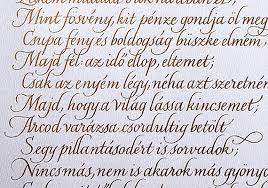 Mint fösvény, kit pénze gondja öl meg
Csupa fény és boldogság büszke elmém,
Majd fél: az idő ellop, eltemet;
Csak az enyém légy, néha azt szeretném
Majd, hogy a világ lássa kincsemet;
Arcod varázsa csordultig betölt
S egy pillantásodért is sorvadok;
Nincs más, nem is akarok más gyönyö